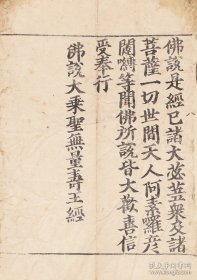 佛說是經已諸大苾芻衆及諸
菩薩一切世間天人阿素囉彦
闥嚩等聞佛所說皆大歡喜信
受奉行
佛說大乘聖無量壽王經